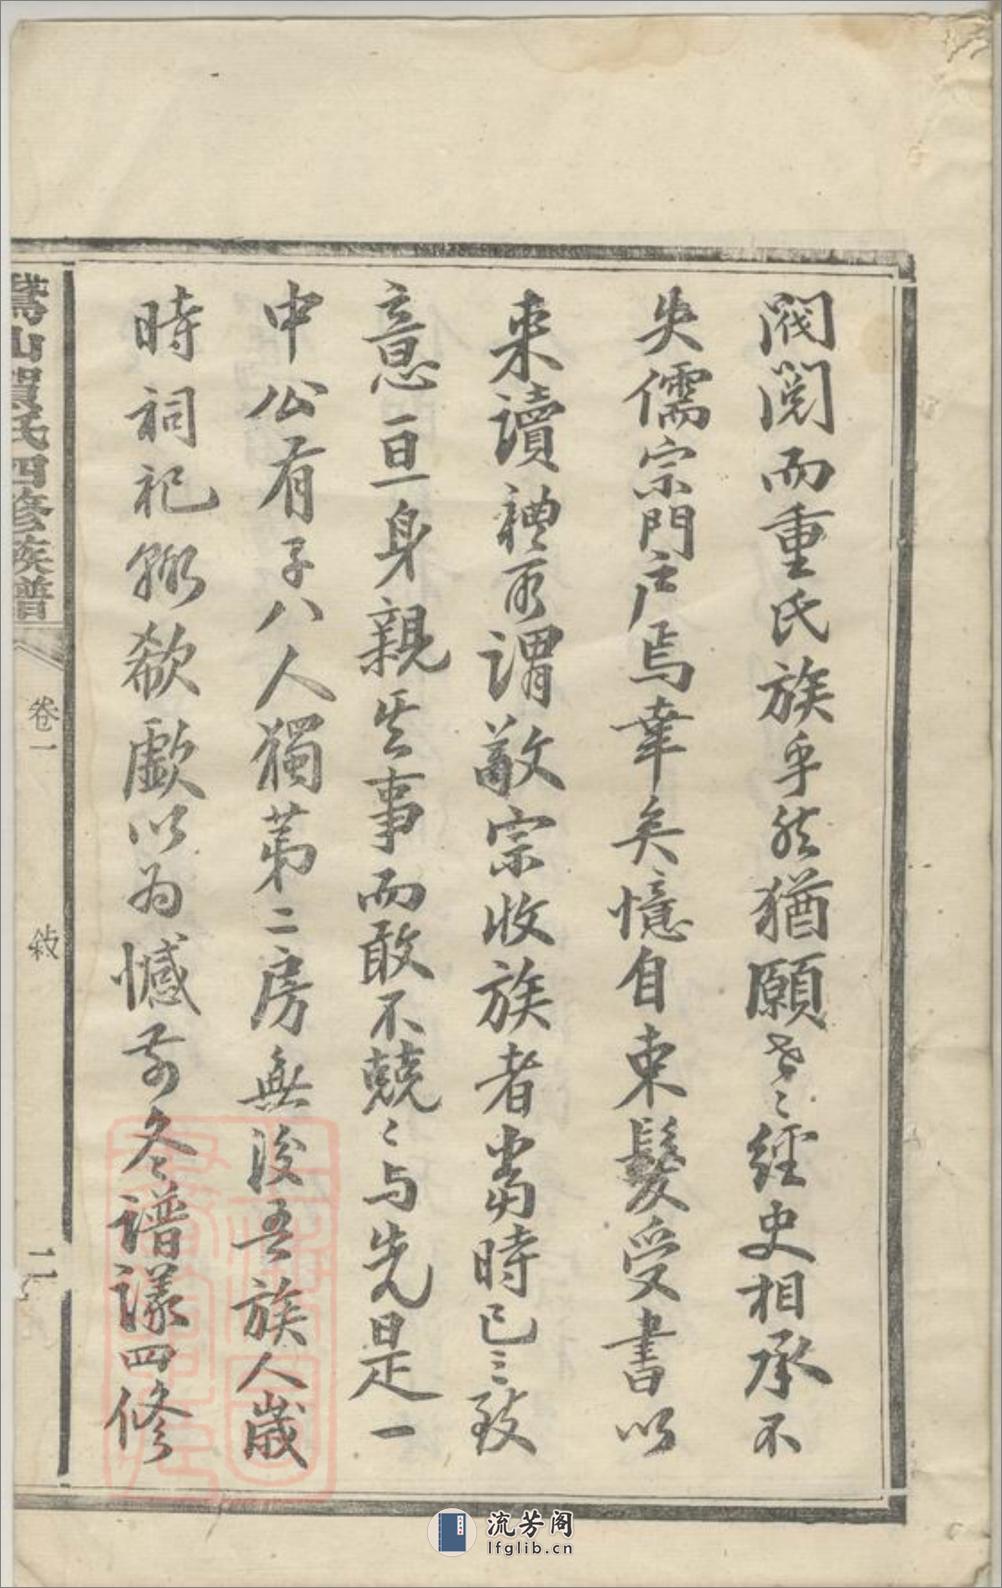 閥閱而重氏族乎然猶願世世經史相承不
失儒宗門戶焉幸矣憶自束髮受書以
來讀禮所謂敬宗收族者當時已三致
意亘身親其事而敢不兢〻与先是一
中公有子八人獨苐二房無後吾族人歲
時祠祀輒欷歔以為憾前冬譜議四修
山賀氏四修族譜
卷一
敘
二
流芳阁
lfglib.cn